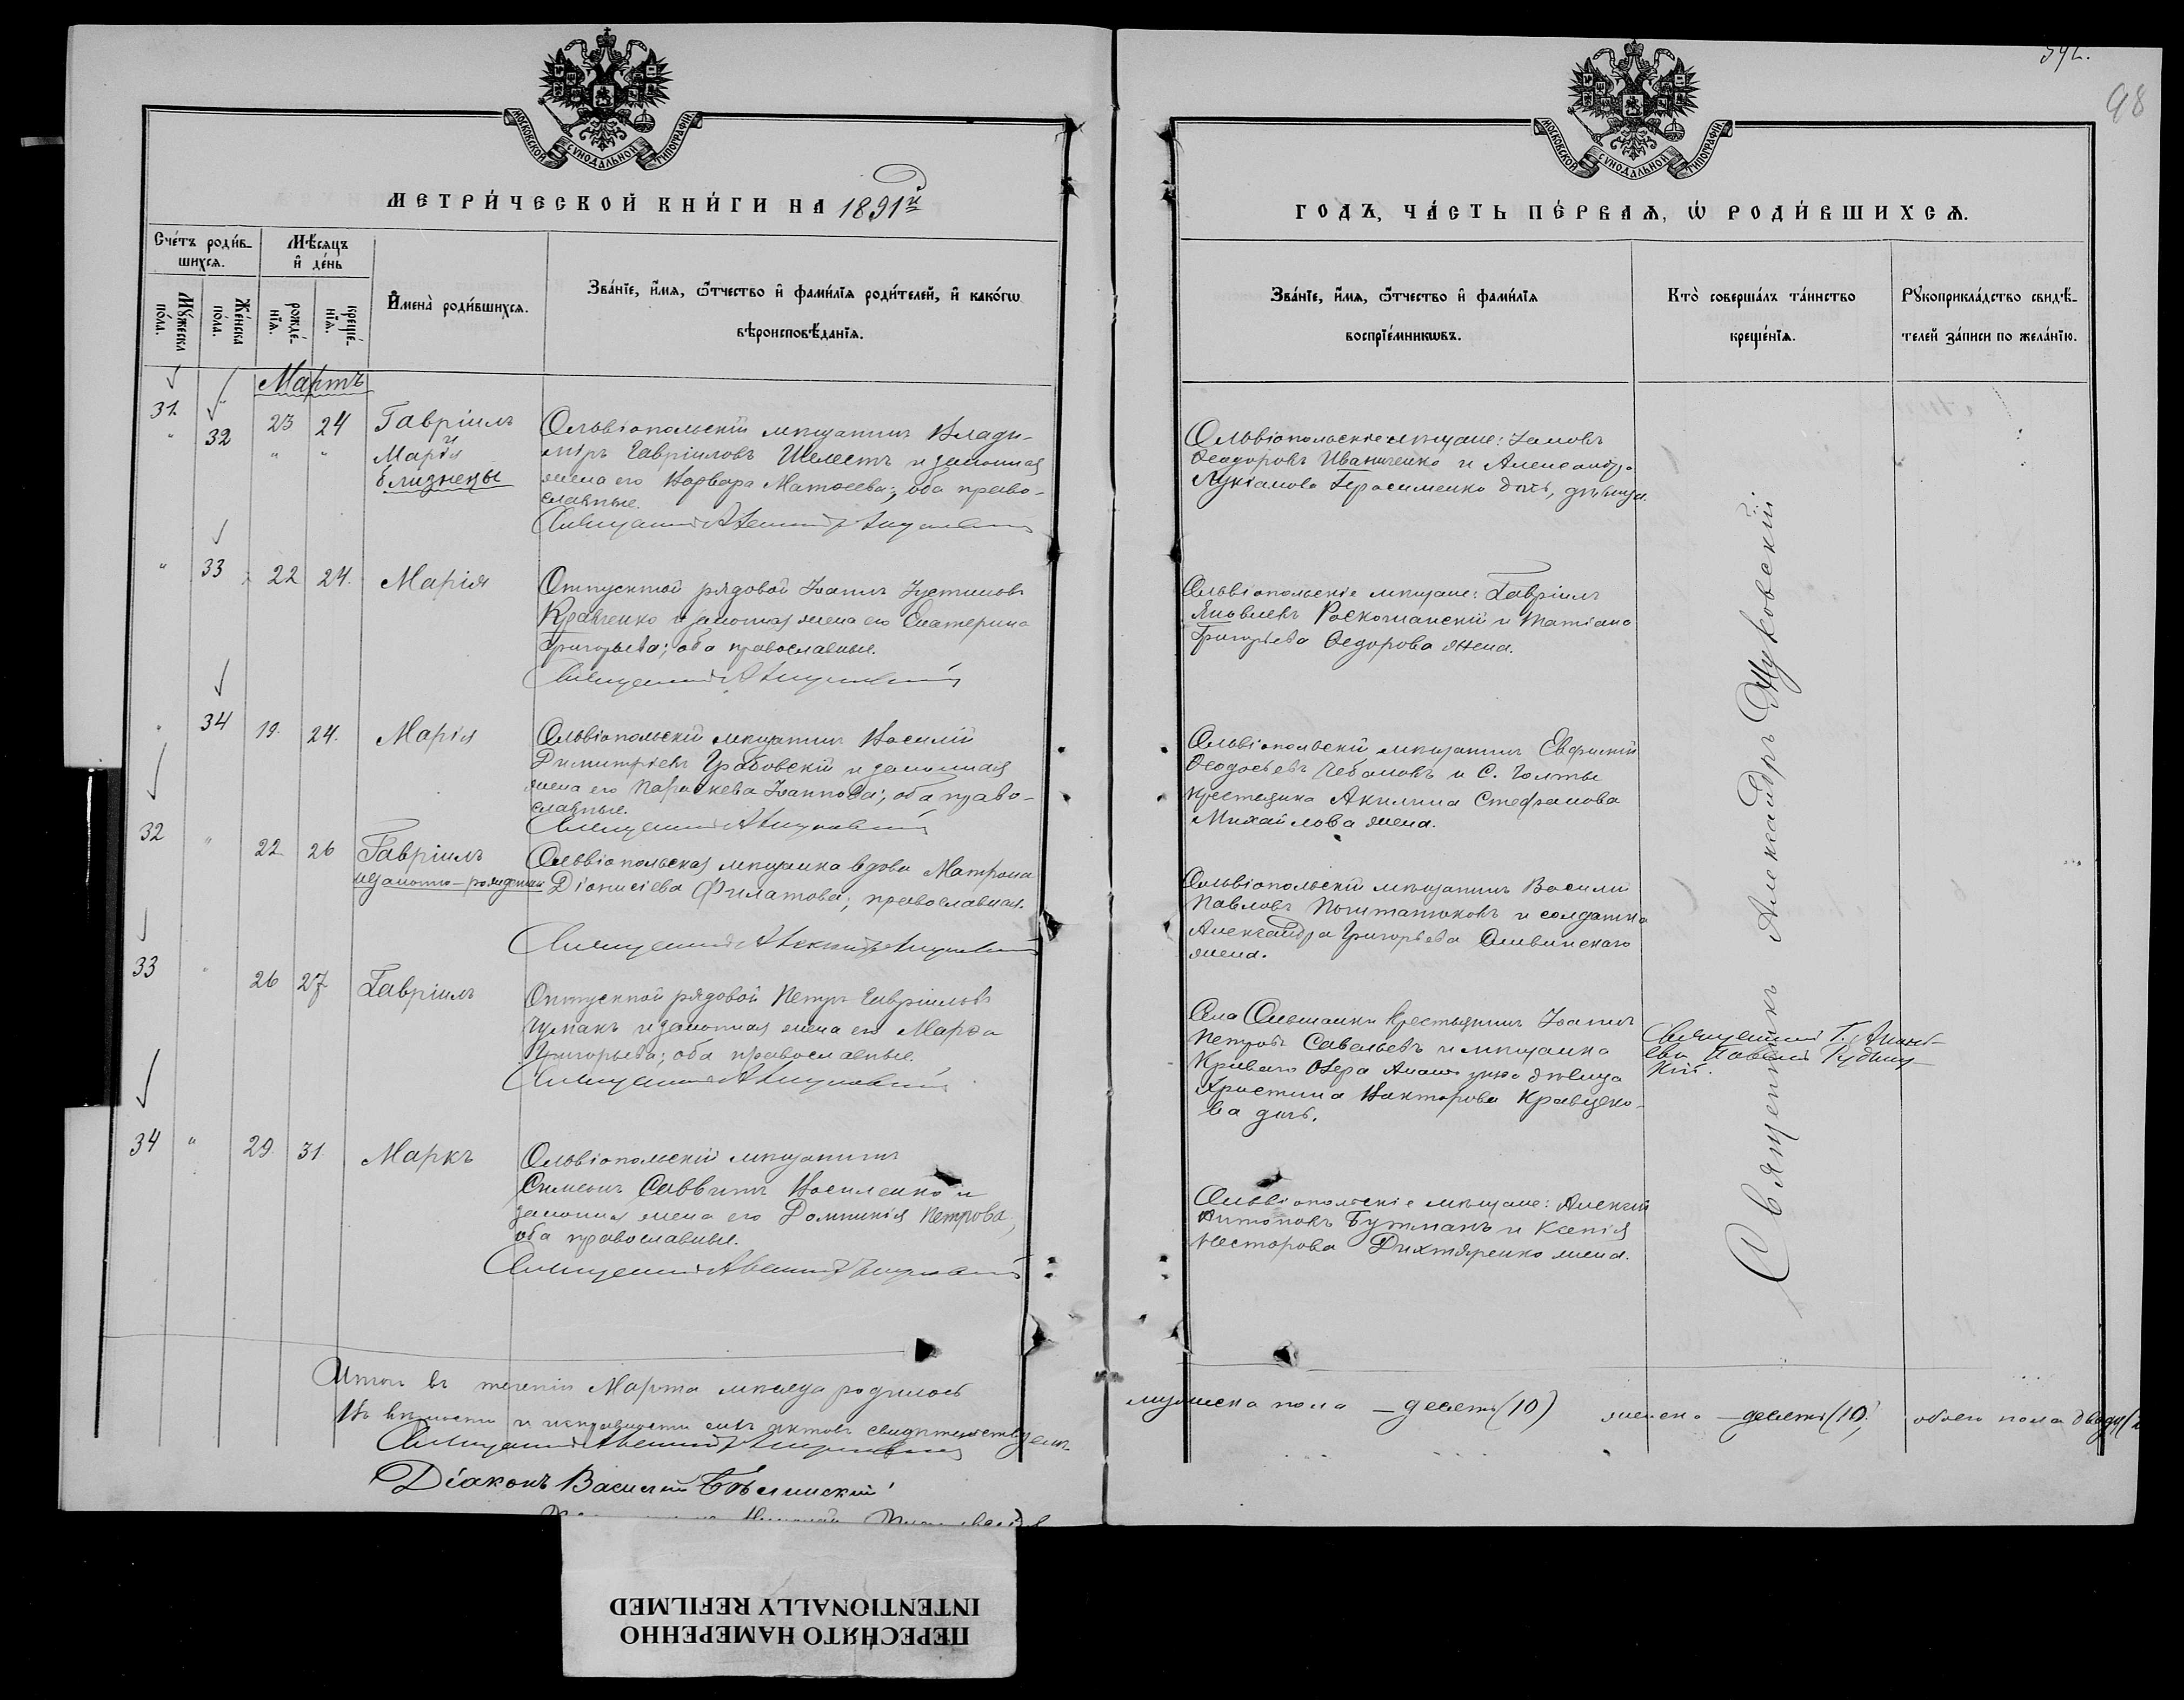 МОСКОВСКОЙ СѴНОДАЛЬНОЙ ТИПОГРАФІИ
МЕТРИ́ЧЕСКОЙ КНИ́ГИ НА 1891й
Сче́тъ роди́в-
шихсѧ.
Мѣ́сѧцъ
и҆ де́нь
Мꙋ́жеска
по́ла.
Же́нска
по́ла.
рожде́-
нїѧ.
креще́-
нїѧ.
И҆мена̀ роди́вшихсѧ.
Зва́нїе, и҆́мѧ, ѻ҆́тчество и҆ фами́лїѧ роди́телей, и҆ како́гѡ
вѣроисповѣ́данїѧ.
Мартъ
31 "
" 32
23 24
" "
Гавріилъ
и
Марія
близнецы
Ольвіопольскій мѣщанинъ Влади-
міръ Гавріиловъ Шелестъ и законная
жена его Варвара Матѳеева; оба право-
славные.
Священникъ
" 33 22 24. Марія
Отпускной рядовой Іоаннъ Іустиновъ
Кравченко и законная жена его Екатерина
Григорьева; оба православные.
Священникъ
" 34 19. 24. Марія
Ольвіопольскій мѣщанинъ Василій
Димитріевъ Грабовскій и законная
жена его Параскева Іоаннова; оба право-
славные.
Священникъ
32 " 22 26 Гавріилъ
незаконно-рожденный
Ольвіопольская мѣщанка вдова Матрона
Діонисіева Филатова; православная.
Священникъ
33 " 26 27 Гавріилъ
Отпускной рядовой Петръ Гавріиловъ
Чумакъ и законная жена его Марѳа
Григорьева; оба православные.
Священникъ
34 " 29. 31. Маркъ
Ольвіопольскій мѣщанинъ
Симеонъ Саввинъ Василенко и
законная жена его Домникія Петрова,
оба православные.
Священникъ
Итого въ теченіи Марта мѣсяца родилось
Въ вѣрности и исправности сихъ актовъ свидѣтельствуемъ
Священникъ
Діаконъ Василій Бѣлинскій
98
МОСКОВСКОЙ СѴНОДАЛЬНОЙ ТИПОГРАФІИ
ГОДЪ, ЧА́СТЬ ПЕ́РВАѦ, Ѡ҆ РОДИ́ВШИХСѦ.
Зва́нїе, и҆́мѧ, ѻ҆́тчество и҆ фами́лїѧ
воспрїе́мникѡвъ.
Кто̀ соверша́лъ та́инство
креще́нїѧ.
Рꙋкоприкла́дство свидѣ́-
телей за́писи по жела́нїю.
Ольвіопольскіе мѣщане:
Ѳеодоровъ Иваниченко и Александра
Лукіанова Герасименко дочь, дѣвица.
Ольвіопольскіе мѣщане: Гавріилъ
Яковлевъ и Татіана
Григорьева Ѳедорова жена.
Ольвіопольскій мѣщанинъ Евфимій
Ѳеодосьевъ Чебановъ и С. Голты
крестьянка Акилина Стефанова
Михайлова жена.
Ольвіопольскій мѣщанинъ Василій
Павловъ и солдатка
Александра Григорьева
жена.
Села Ольшанки крестьянинъ Іоаннъ
Петровъ Савельевъ и мѣщанка
Криваго Озера дѣвица
Христина Викторова
дочь.
Ольвіопольскіе мѣщане: Алексій
Антоновъ Гутманъ и Ксенія
Несторова Дихтяренко жена.
Священникъ Александръ Жуковскій
Священникъ Г.
мужеска пола – десять (10) женска – десять (10), обоего пола
ПЕРЕСНЯТО НАМЕРЕННО
INTENTIONALLY REFILMED